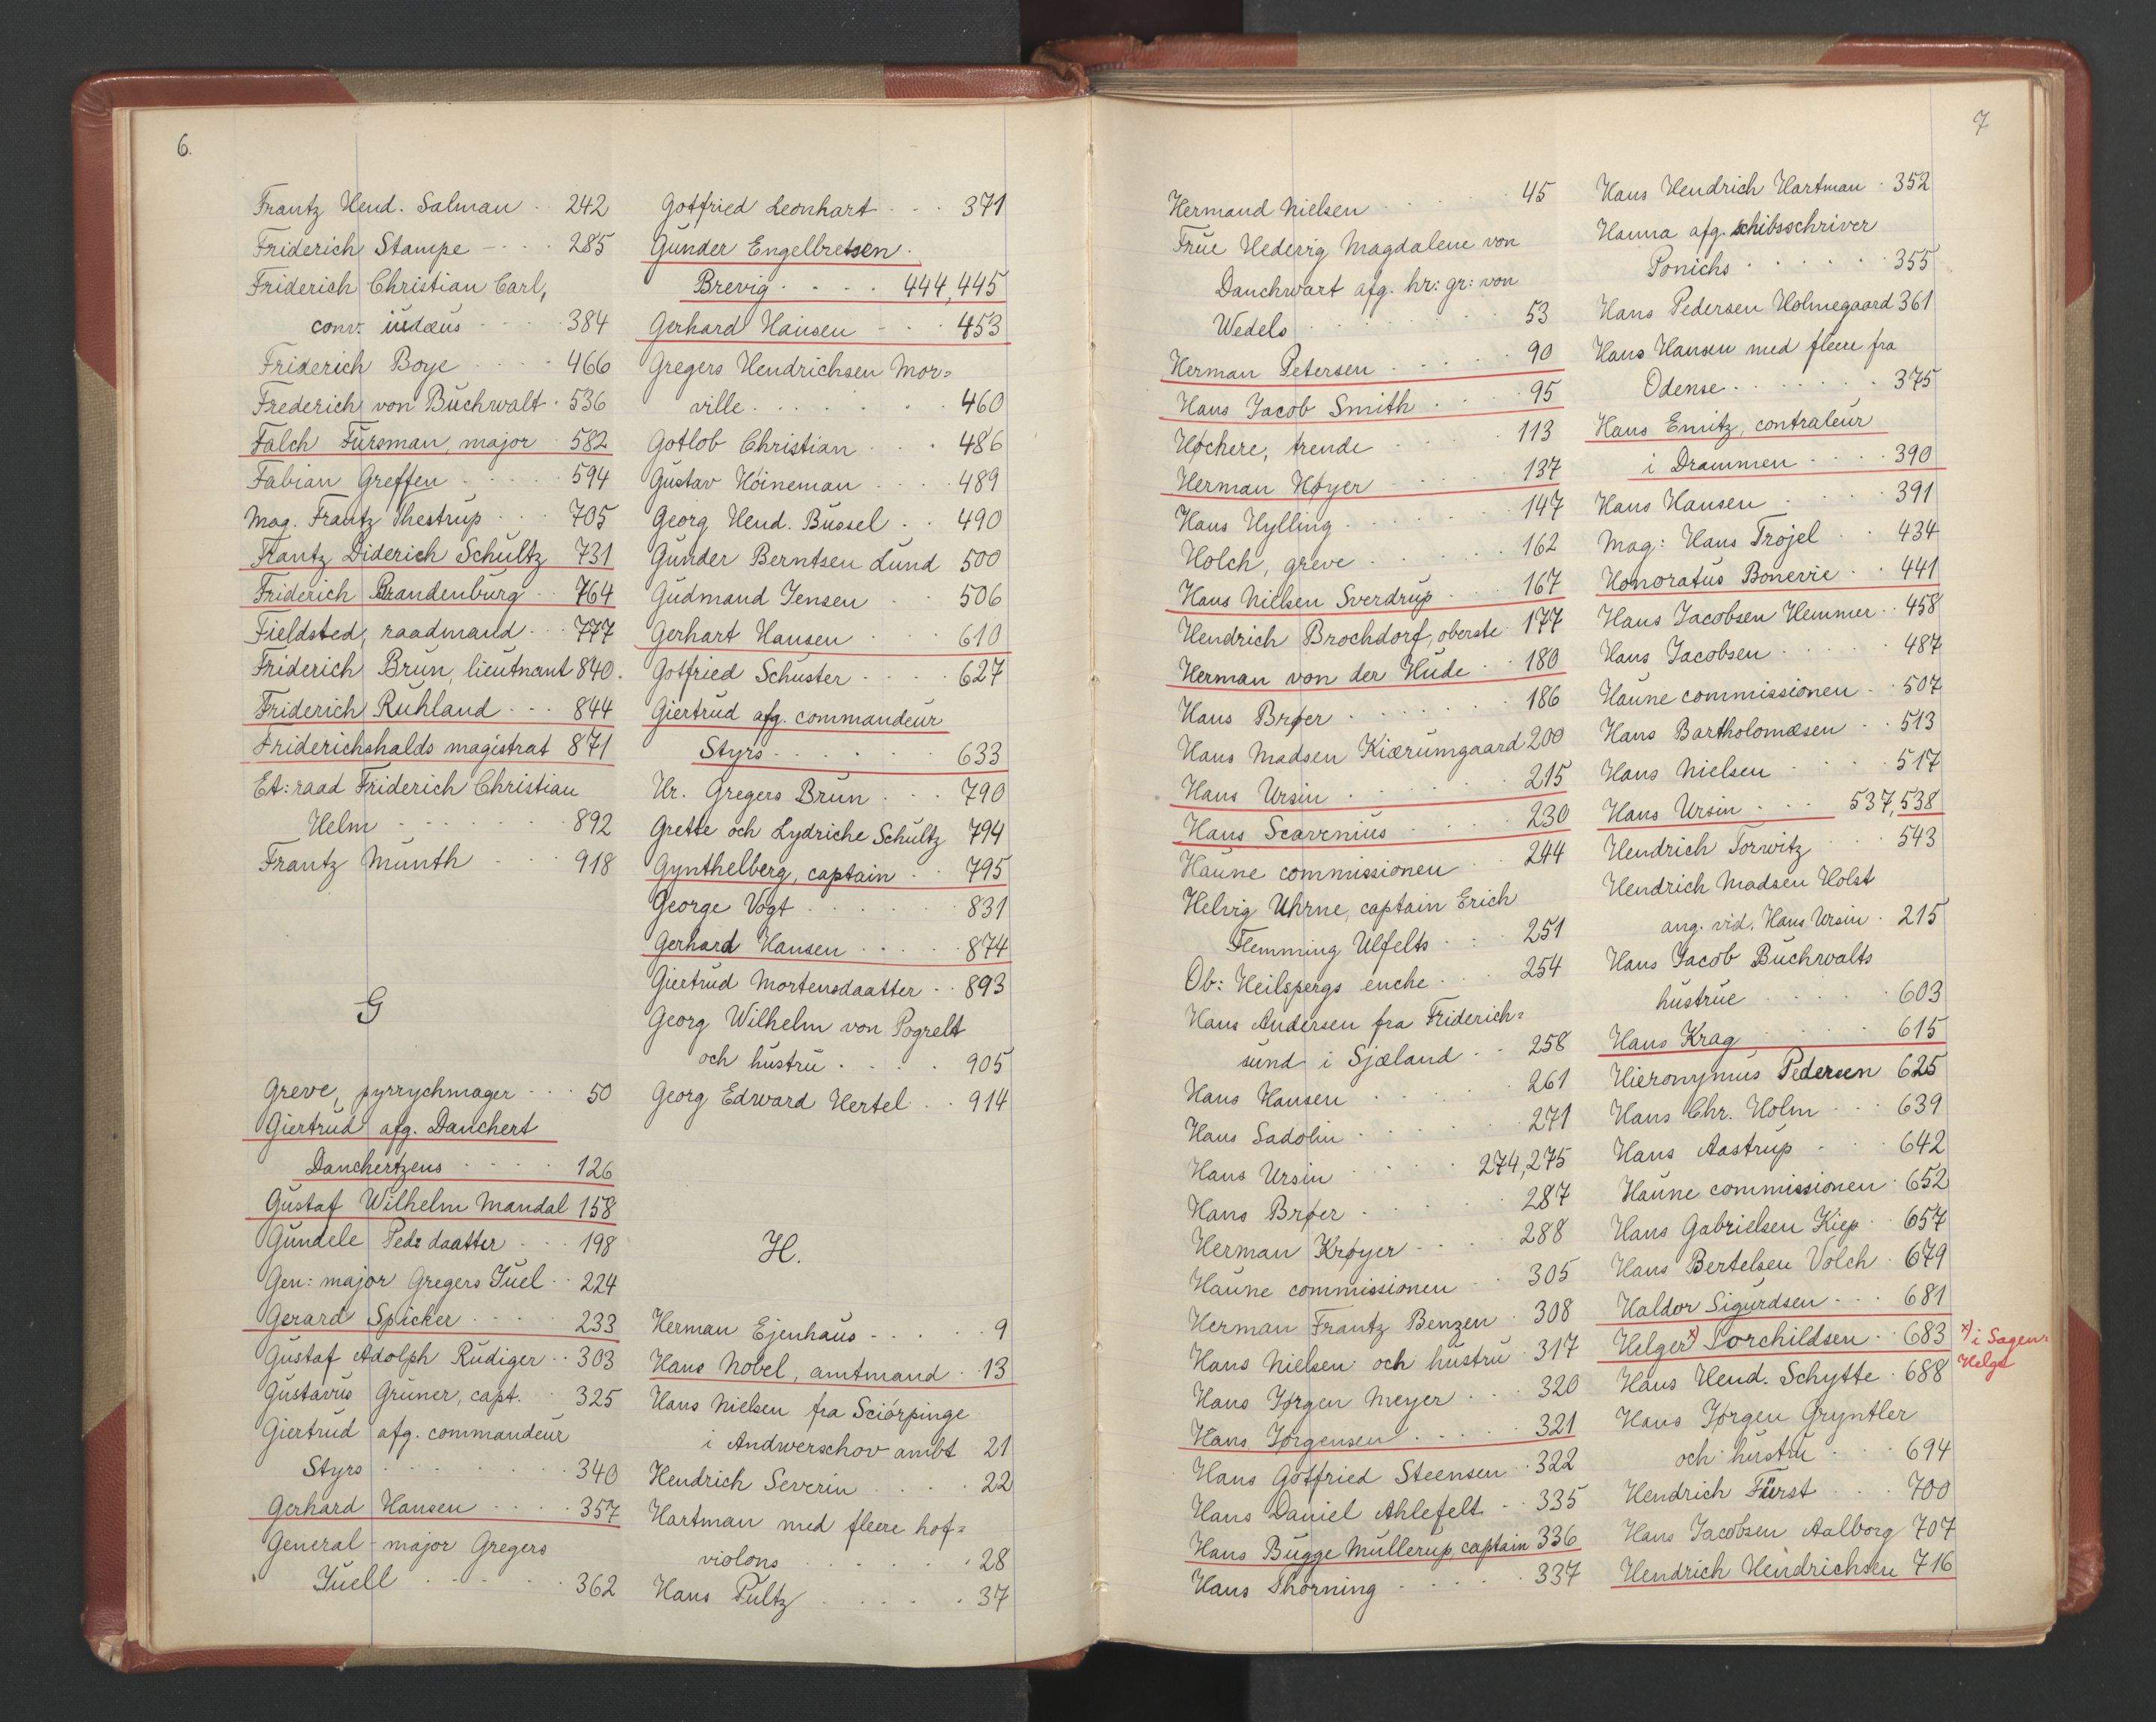 6.
Frantz Hend. Salman 242
Friderich Stampe 285
Friderich Christian Carl,
conv. iudæus 384
Friderich Boye 466
Frederich von Büchwalt 536
Falch Fürsman, major 582
Fabian Greffen 594
Mag. Frantz Thestrup 705
Frantz Diderich Schültz 731
Friderich Brandenbürg 764
Fieldsted, raadmand 777
Friderich Brün, lieütnant 840.
Friderich Rühland 844
Friderichshalds magistrat 871
Et: raad Friderich Christian
Helm 892
Frantz Münth 918
G
Greve, pyrrychmager 50
Giertrüd afg. Danchert
Danchertzens 126
Güstaf Wilhelm Mandal 158
Gündele Peds daatter 198
Gen: major Gregers Jüel 224
Gerard Spicker 233
Güstaf Adolph Rüdiger 303
Güstavüs Grüner, capt. 325
Giertrüd afg. commandeür
Styrs 340
Gerhard Hansen 357
General-major Gregers
Jüell 362
Gotfried Leonhart 371
Günder Engelbretsen
Brevig 444, 445
Gerhard Hansen 453
Gregers Hendrichsen Mor=
ville 460
Gotlob Christian 486
Güstav Höineman 489
Georg Hend. Büssel 490
Günder Berntsen Lünd 500
Güdmand Jensen 506
Gerhart Hansen 610
Gotfried Schüster 627
Giertrüd afg. commandeür
Styrs 633
Hr. Gregers Brün 790
Grette och Lydriche Schültz 794
Gynthelberg, captain 795
George Vogt 831
Gerhard Hansen 874
Giertrüd Mortensdaatter 893
Georg Wilhelm von Pogrelt
och hüstrü 905
Georg Edward Hertel 914
H.
Herman Ejenhaüs 9
Hans Nobel, amtmand 13
Hans Nielsen fra Sciörpinge
i Andwerschov ambt 21
Hendrich Severin 22
Hartman med fleere hof=
violons 28
Hans Pültz 37
7
Hermand Nielsen 45
Früe Hedevig Magdalene von
Danchwart afg. hr: gr: von
Wedels 53
Herman Petersen 90
Hans Jacob Smith 95
Høchere, trende 113
Herman Høyer 137
Hans Hylling 147
Holch, greve 162
Hans Nielsen Sverdrüp 167
Hendrich Brochdorf, oberste 177
Herman von der Hüde 180
Hans Brøer 186
Hans Madsen Kiærümgaard 200
Hans Ursin 215
Hans Scavenius 230
Haüne commissionen 244
Helvig Uhrne, captain Erich
Flemming Ulfelts 251
Ob: Heilspergs enche 254
Hans Andersen fra Friderich=
sünd i Sjæland 258
Hans Hansen 261
Hans Sadolin 271
Hans Ursin 274, 275
Hans Brøer 287
Herman Krøyer 288
Haüne commissionen 305
Herman Frantz Benzen 308
Hans Nielsen och hüstrü 317
Hans Jørgen Meyer 320
Hans Jørgensen 321
Hans Gotfried Steensen 322
Hans Daniel Ahlefelt 335
Hans Bügge Müllerüp, captain 336
Hans Thorning 337
Hans Hendrich Hartman 352
Hanna afg. schibsschriver
Ponichs 355
Hans Pedersen Holmegaard 361
Hans Hansen med fleere fra
Odense 375
Hans Emitz, contraleür
i Drammen 390
Hans Hansen 391
Mag: Hans Trojel 434
Honoratüs Bonevie 441
Hans Jacobsen Hemmer 458
Hans Jacobsen 487
Haüne commissionen 507
Hans Bartholomæsen 513
Hans Nielsen 517
Hans Ursin 537, 538
Hendrich Torwitz 543
Hendrich Madsen Holst
ang. vid. Hans Ursin 215
Hans Jacob Büchwalts
hüstrüe 603
Hans Krag 615
Hieronymüs Pedersen 625
Hans Chr. Holm 639
Hans Aastrüp 642
Haüne commissionen 652
Hans Gabrielsen Kiep 657
Hans Bertelsen Volch 679
Haldor Sigürdsen 681
Helger x) Torchildsen 683 x) i Sagen:
Helge
Hans Hend. Schytte 688
Hans Jørgen Gryntler
och hüstrü 694
Hendrich Fürst 700
Hans Jacobsen Aalborg 707
Hendrich Hendrichsen 716